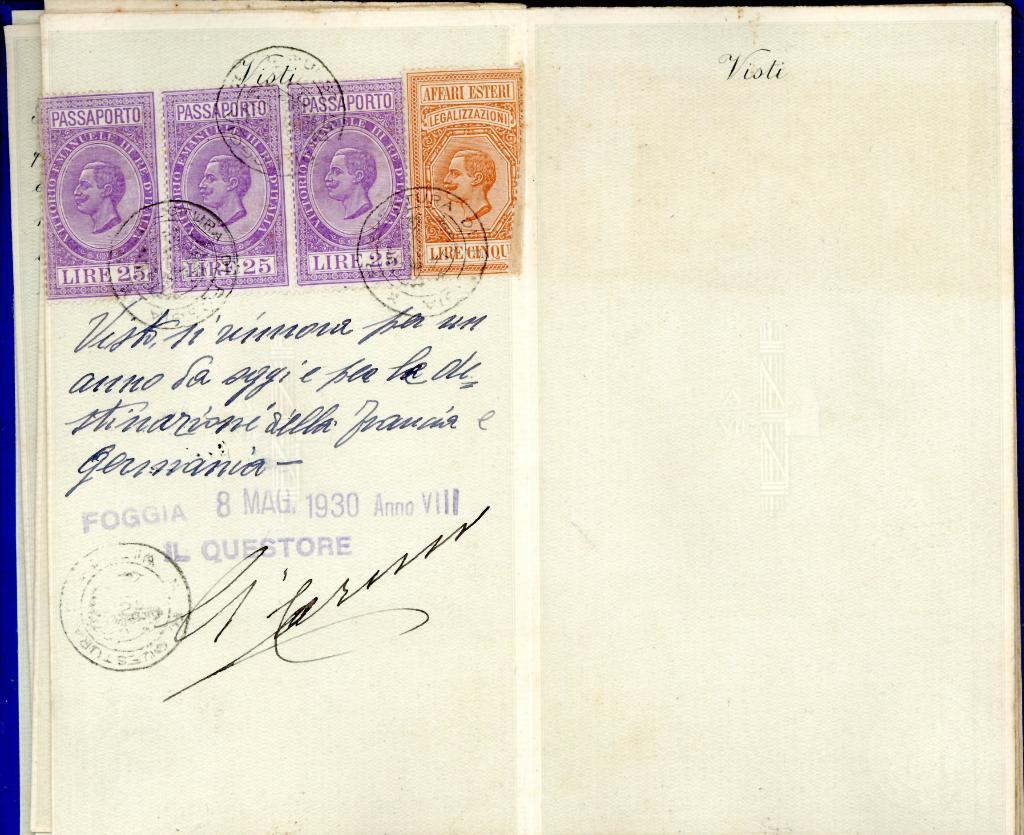 Visti
PASSAPORTO
VITTORIO EMANUELE III RE D'ITALIA
LIRE 25
PASSAPORTO
VITTORIO EMANUELE III RE D'ITALIA
LIRE 25
PASSAPORTO
VITTORIO EMANUELE III RE D'ITALIA
LIRE 25
AFFARI ESTERI
LEGALIZZAZIONI
LIRE CINQU
Visto, si rinnova per un
anno da oggi e per le de-
stinazioni della Francia e
Germania —
FOGGIA 8 MAG. 1930 Anno VIII
IL QUESTORE
QUESTURA
Visti